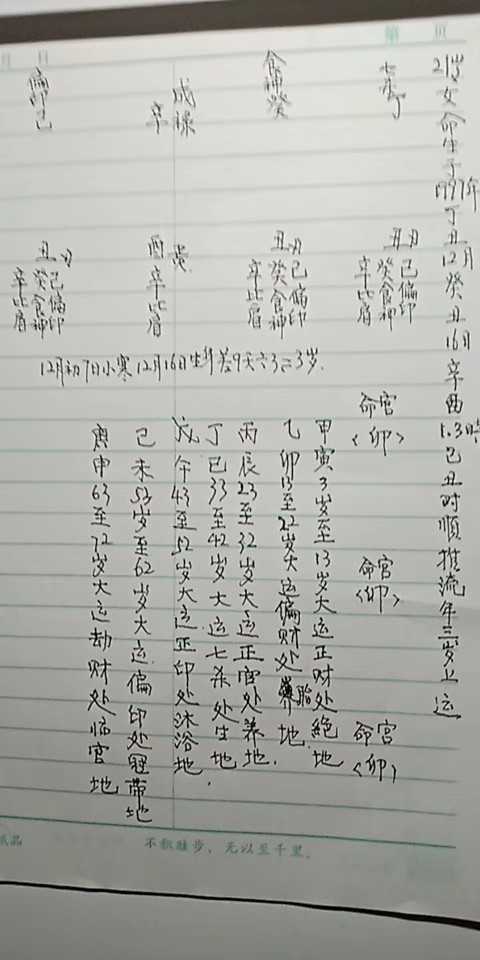 月 日
第 页
21岁女命生于1997年丁丑12月癸丑16日辛酉1.3時己丑时順推流年三岁上运
七杀丁
食神癸
成禄
辛
偏印己
丑
己偏印
癸食神
辛比肩
丑
己偏印
癸食神
辛比肩
酉
辛比肩
丑
己偏印
癸食神
辛比肩
12月初7日小寒12月16日生年差9天六3=3岁.
命宫
<卯>
命宫
<卯>
命宫
<卯>
甲寅3岁至13岁大运正财处絶地
乙卯13至22岁大运偏财处胎地.
丙辰23至32岁大运正官处养地.
丁巳33至42岁大运七杀处生地.
戊午43至52岁大运正印处沐浴地
己未53岁至62岁大运偏印处冠带地
庚申63至72岁大运劫财处临官地
不积跬步，无以至千里.